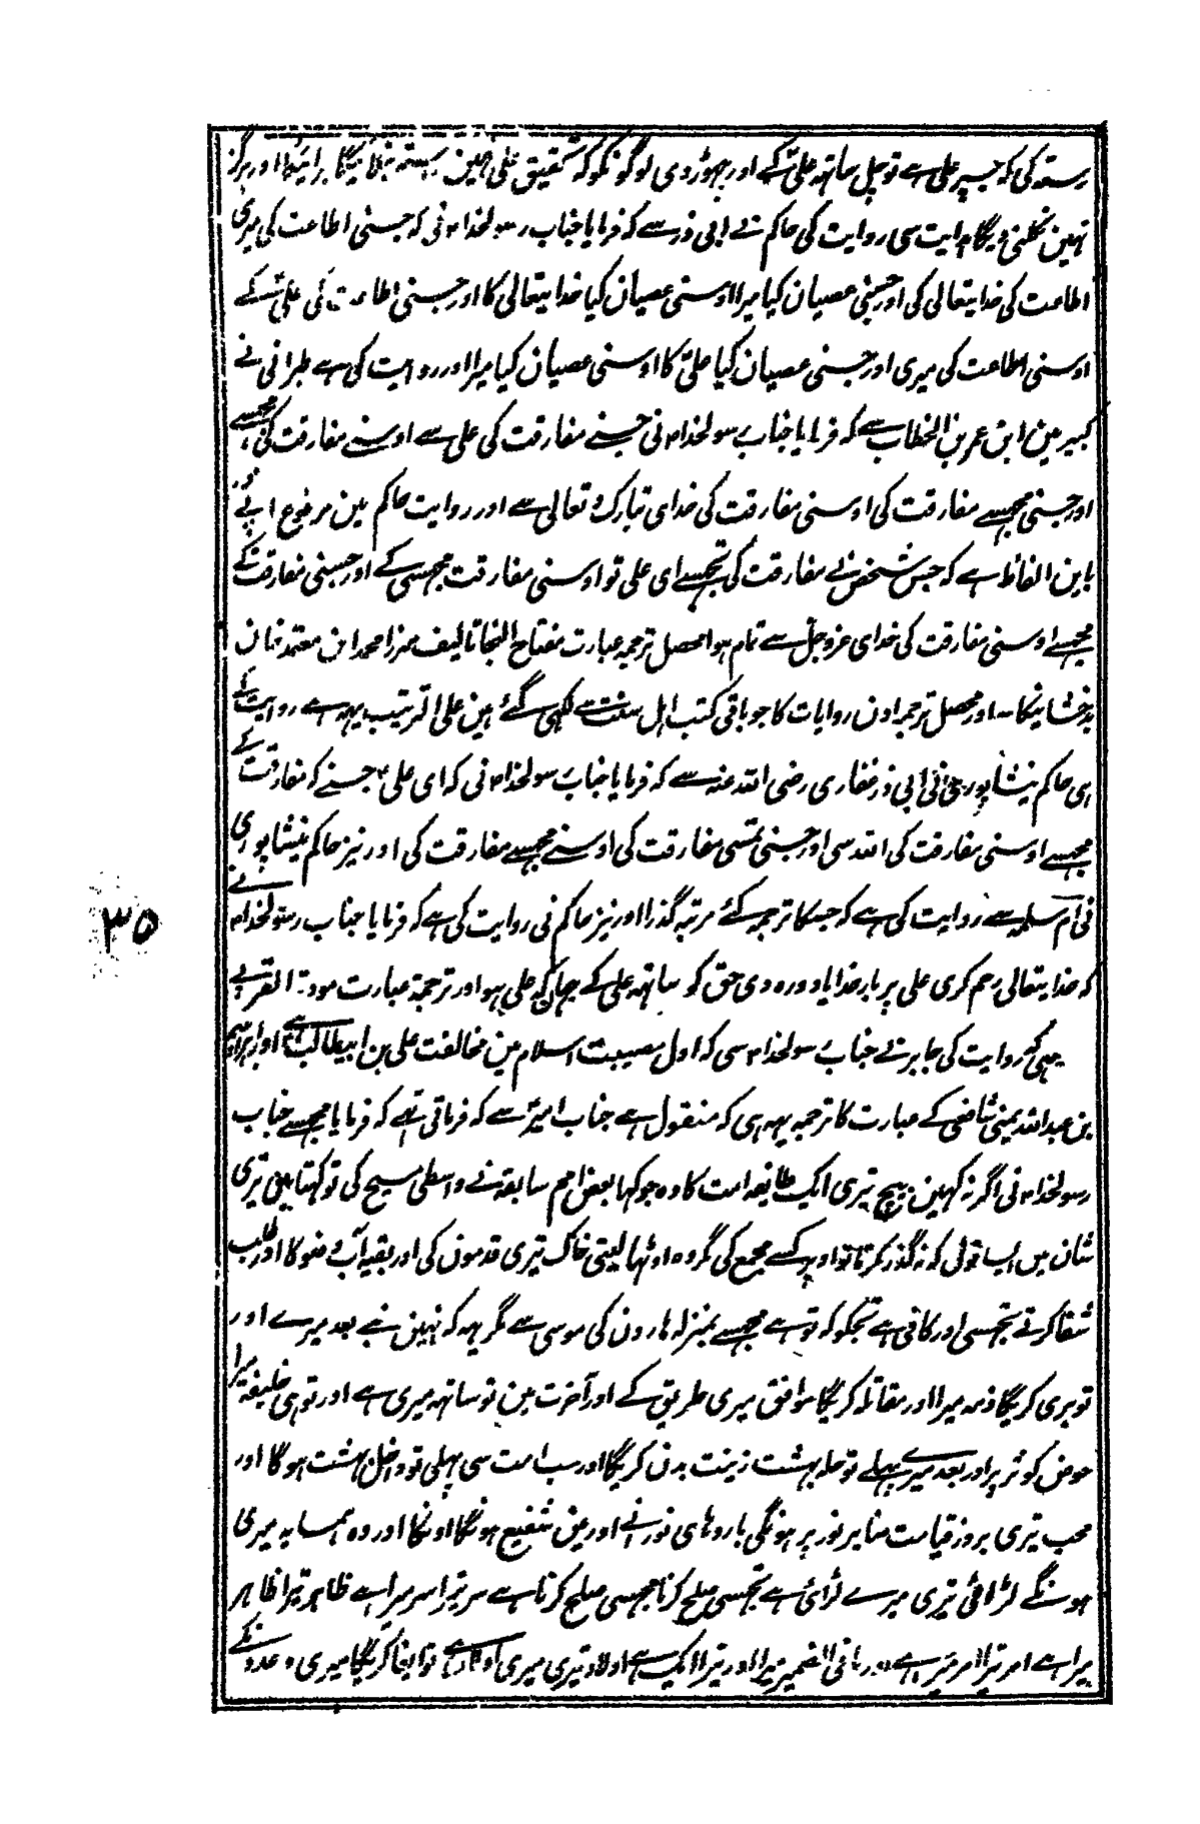 رستہ کی کہ جسپر علی ہے تو چل ساتھ علیؑ کے اور چہوڑ دی لوگونکو کہ تحقیق علی تمہین رستہ اور ہرگز
نہین نکلنی دیگا ہدایت سی روایت کی حاکم نے ابی ذر سے کہ فرمایا جناب رسولخدا م نی کہ جسنی اطاعت کی میری
اطاعت کی خدایتعالی کی اور جسنی عصیان کیا میرا اوسنی عصیان کیا خدایتعالی کا اور جسنی اطاعت کی علیؑ کے
اوسنی اطاعت کی میری اور جسنی عصیان کیا علیؑ کا اوسنی عصیان کیا میرا اور روایت کی ہے طبرانی نے
کبیر مین ابن عمر بن الخطاب سے کہ فرمایا جناب رسولخدا م نی جسنے مفارقت کی علی سے اوسنے مفارقت کی مجہسے
اور جسنی مجہسے مفارقت کی اوسنی مفارقت کی خدای تبارک و تعالی سے اور روایت حاکم مین مرفوع ابی ذر
باین الفاظ ہے کہ جس شخص نے مفارقت کی تجہسے ای علی تو اوسنی مفارقت مجہسی کے اور جسنی مفارقت کے
مجہسے اوسنی مفارقت کی خدای عزوجل سے تمام ہوا محصل ترجمہ عبارت مفتاح النجا تالیف مرزا محمد ابن معتمد خان
بدخشانیکا ۔ اور محصل ترجمہ اون روایات کا جو باقی کتب اہل سنت سے لکہی گئے ہین علی الترتیب یہہ ہے روایت کے
ہی حاکم نیشاپوری نی ابی ذر غفاری رضی اللہ عنہ سے کہ فرمایا جناب رسولخدا م نی کہ ای علی م جسنے کہ مفارقت کے
مجہسے اوسنی مفارقت کی اللہ سی اور جسنی تمسی مفارقت کی اوسنے مجہسے مفارقت کی اور نیز حاکم نیشاپوری
نی ام سلمہ سے روایت کی ہے کہ جسکا ترجمہ کئے مرتبہ گذرا اور نیز حاکم نی روایت کی ہے کہ فرمایا جناب رسولخدا م نے
کہ خدایتعالی رحم کری علی پر بار خدایا دورہ دی حق کو ساتھ علی کے جہان کہ علی ہو اور ترجمۂ عبارت مودۃ القربے
یہی کہ روایت کی جابر نے جناب رسولخدا م سی کہ اول مصیبت اسلام مین مخالفت علی بن ابیطالب ہے اور ابراہیم
بن عبداللہ یمنی شافعی کے عبارت کا ترجمہ یہہ ہی کہ منقول ہے جناب امیرؑ سے کہ فرماتی تہے کہ فرمایا مجہسے جناب
رسولخدا م نی اگر نہ کہین بیچ تیری ایک طایفہ امت کا وہ جو کہا بعض امم سابقہ نے واسطی مسیح کی تو کہتا مین تیری
شان میں ایسا قول کہ نہ گذر کرتا تو اوپر کسے مجمع کی گروہ اوٹہا لیتی خاک تیری قدمون کی اور بقیہ آب وضو کا اور طلب
شفا کرتے تجہسی اور کافی ہے تجکو کہ تو ہے مجہسے بمنزلہ ہارون کی موسی سے مگر یہہ کہ نہین نبے بعد میرے اور
تو بری کریگا ذمہ میرا اور مقاتلہ کریگا موافق میری طریق کے اور آخرت مین تو ساتہہ میری ہے اور تو ہی خلیفہ میرا
حوض کوثر پر اور بعد میرے پہلے تو حلہ بہشت زینت بدن کریگا اور سب امت سی پہلی تو داخل بہشت ہوگا اور
محب تیری بروز قیامت منابر نور پر ہونگی باروہای نورانے اور مین شفیع ہونگا اونکا اور وہ ہمسایہ میری
ہونگے لڑائی تیری میرے لڑائ ہے تجہسی صلح کرنا مجہسی صلح کرنا ہے سر تیرا سر میرا ہے ظاہر تیرا ظاہر
میرا ہے امر تیرا امر میرا ہے اور مافی الضمیر میرا اور تیرا ایک ہے اولاد تیری میری اولاد ہے تو ایفا کریگا میری وعدونکے
۳۵